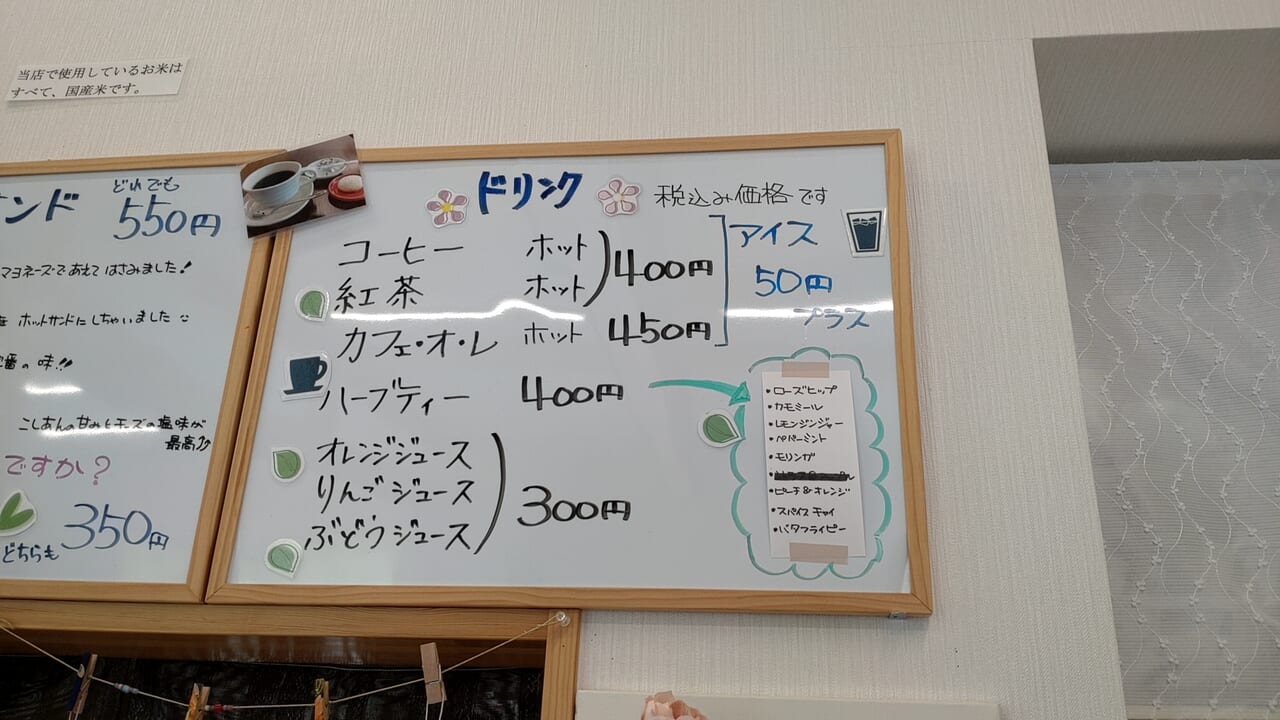 当店で使用しているお米は
すべて、国産米です。
ンド どれでも
550円
マヨネーズであえてはさみました!
ホットサンドにしちゃいました
番の味!!
こしあんの甘みとチーズの塩味が
最高
ですか?
どちらも 350円
ドリンク 税込み価格です
コーヒー ホット
紅茶 ホット
400円
カフェ・オ・レ ホット 450円
アイス
50円
プラス
ハーブティー 400円
・ローズヒップ
・カモミール
・レモンジンジャー
・ペパーミント
・モリンガ
・ピーチ&オレンジ
・スパイスチャイ
・バタフライピー
オレンジジュース
りんごジュース
ぶどうジュース
300円